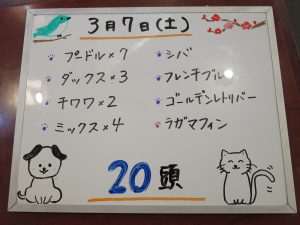 3月7日(土)
プードル×7
ダックス×3
チワワ×2
ミックス×4
シバ
フレンチブル
ゴールデンレトリバー
ラガマフィン
20頭